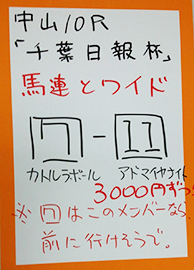 中山10R
「千葉日報杯」
馬連とワイド
7-11
カトルラポール アドマイヤナイト
3000円ずつ
※7はこのメンバーなら
前に行けそうで。